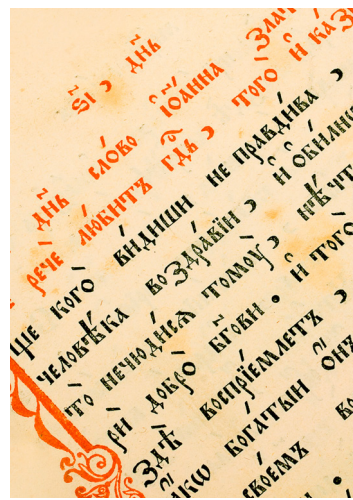 в҃і , дн҃ь
дн҃ь сло́во і҆ѡа́нна Злач
рече лю́битъ гд҇ь , того̀ и҆ ка
ще кого̀ ви́диши не пра́ведика ,
человѣ́ка во здра́вїи , и҆ ѻ҆би́лни
то нечюди́сѧ томоу̀ , нѣ́чт
рѝ добро̀ бг҃ови . и҆ того̀
здѣ̀ воспрїе́млетъ ,
ꙗ҆́кѡ бога́тыи ѻ҆́нъ
свое́мъ